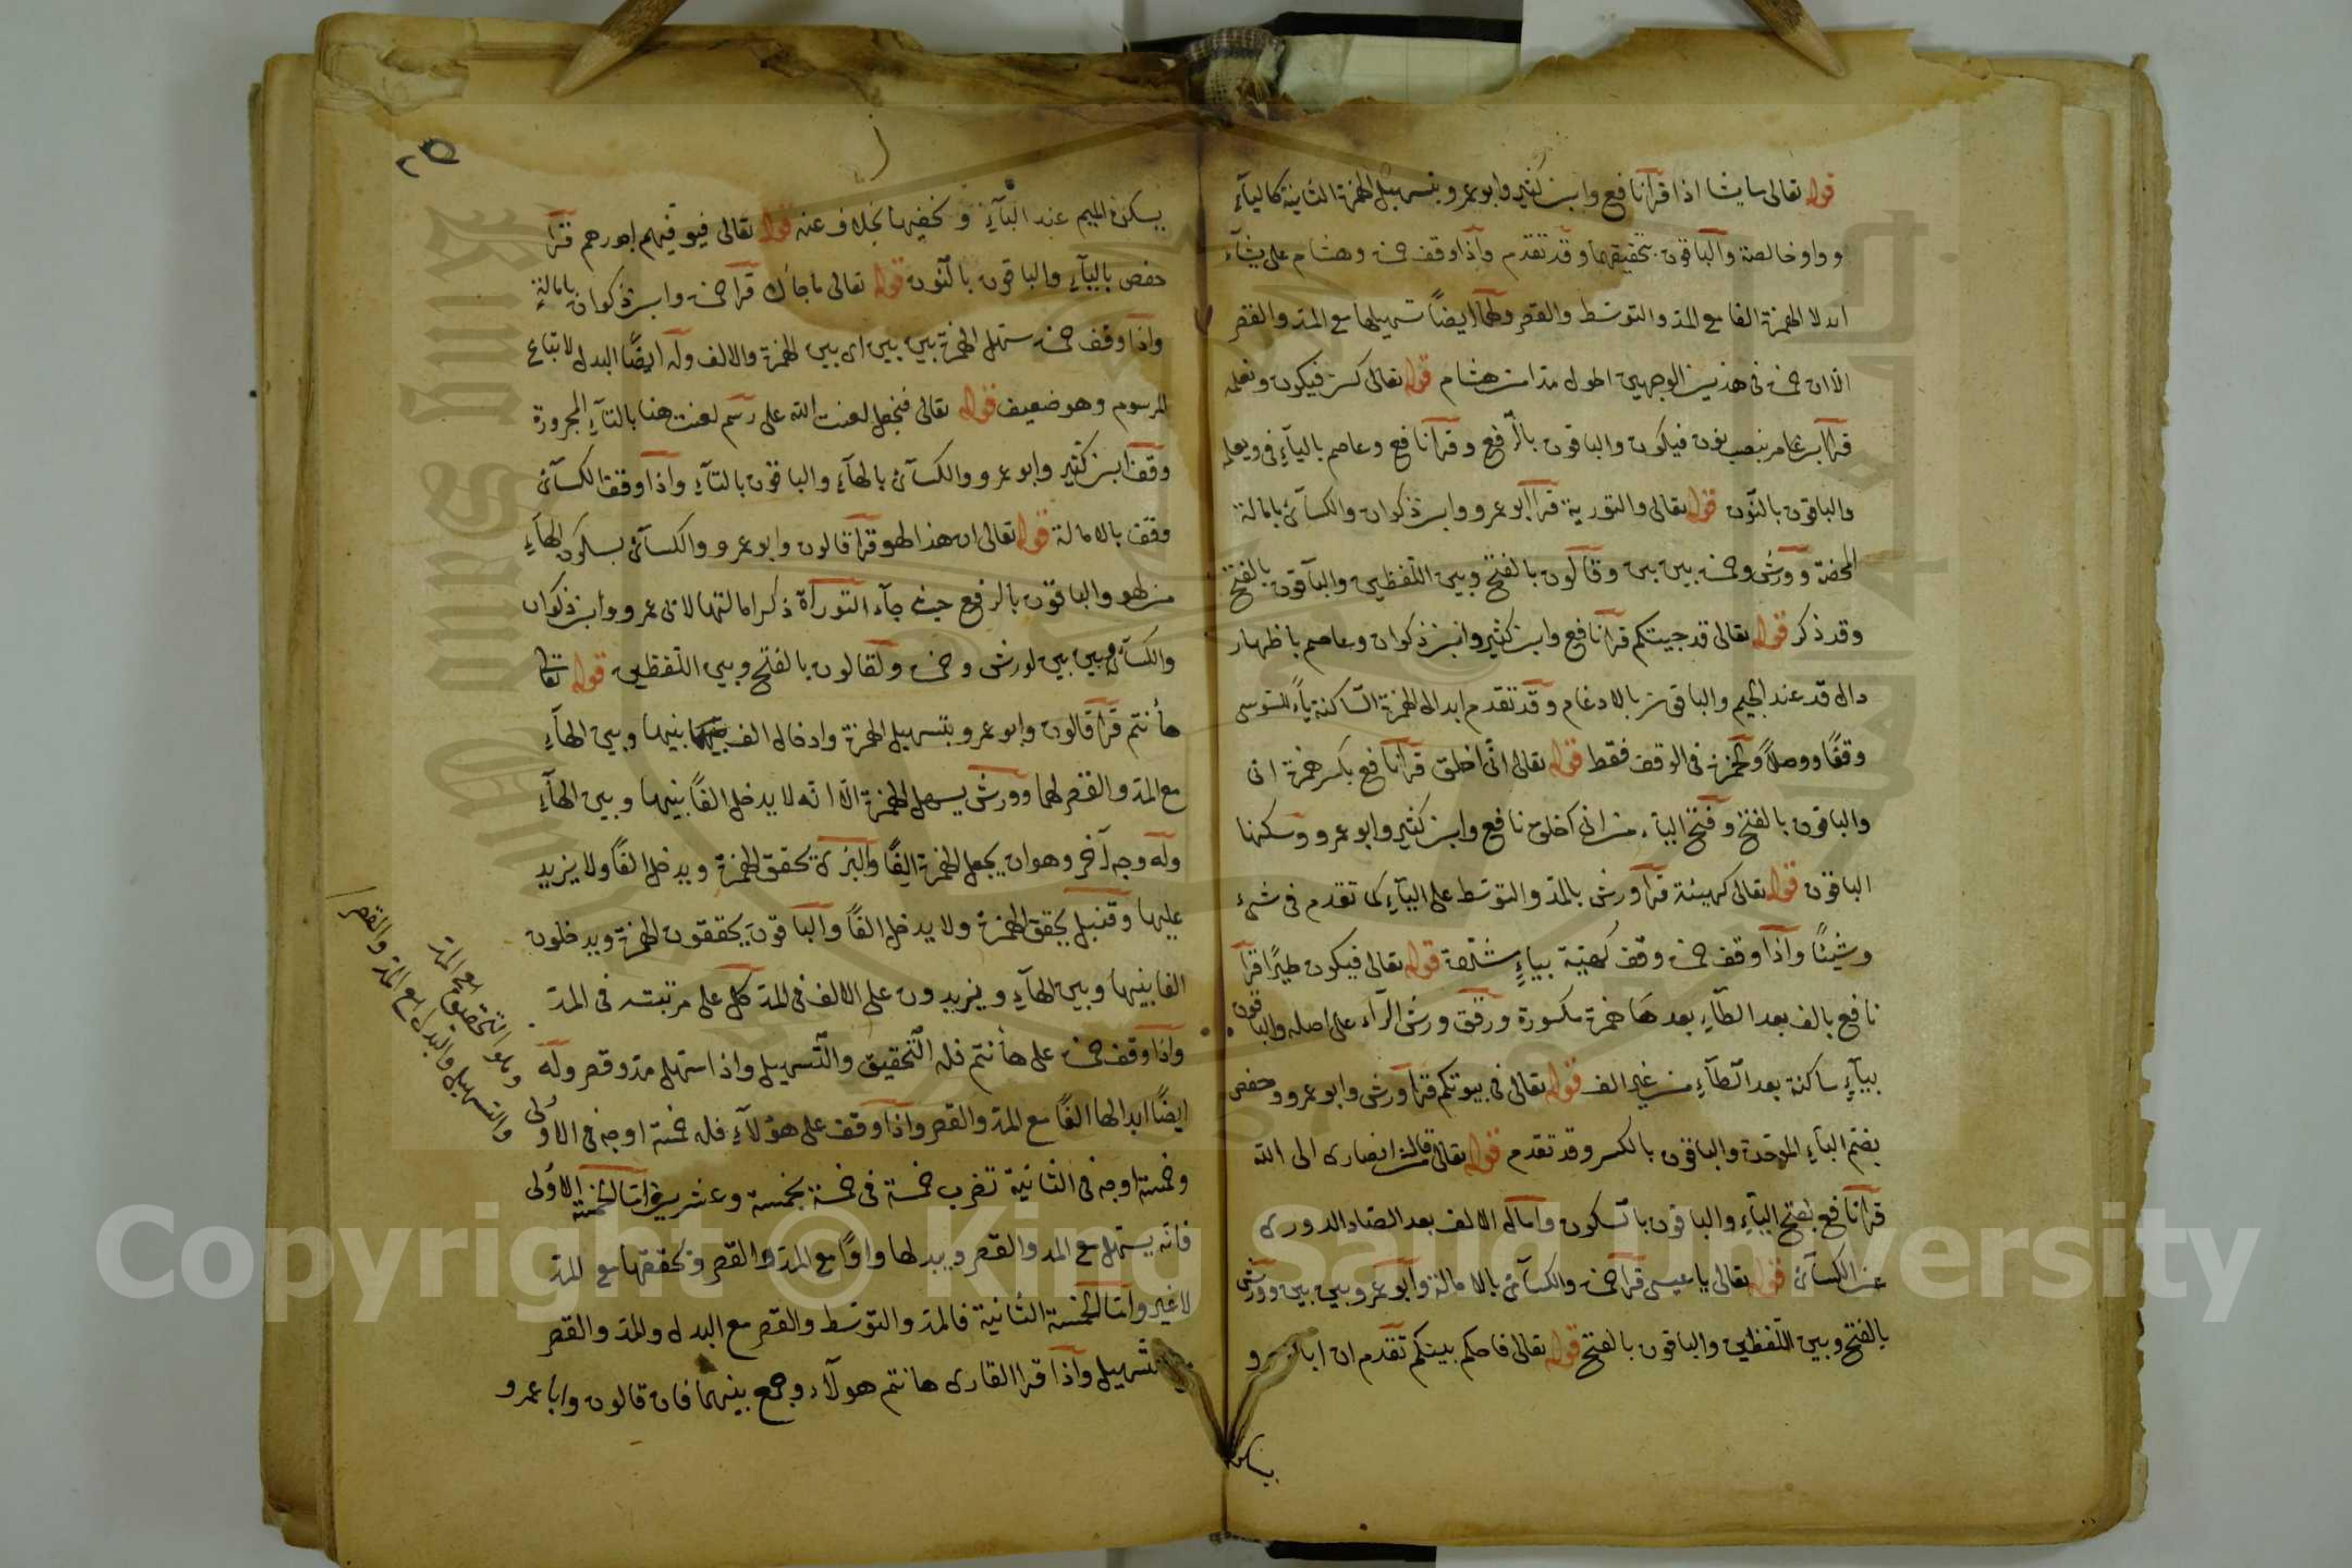 قوله تعالى ما يشا اذا قرا نافع وابن كثير وابو عمرو بتسهيل الهمزة الثانية كاليآءِ
وواو خالصة والباقون بتحقيقها وقد تقدم واذا وقف حمزة وهشام على يشآء
ابدلا الهمزة الفا مع المد والتوسّط والقصر ولهما ايضًا تسهيلها مع المدّ والقصر
الا ان حمزة فى هذين الوجهين اطول مدا من هشام قوله تعالى كن فيكون ونعلمه
قرا ابن عامر بنصب نون فيكون والباقون بالرّفع وقرا نافع وعاصم باليآءِ فى ويعلمه
والباقون بالنّون قوله تعالى والتورية قرا ابو عمرو وابن ذكوان والكسآئى بامالة
المحضة وورش وحمزة بين بين وقالون بالفتح وبين اللّفظين والباقون بالفتح
وقد ذكر قوله تعالى قد جيتكم قرا نافع وابن كثير وابن ذكوان وعاصم باظهار
دال قد عند الجيم والباقون بالادغام وقد تقدم ابدال الهمزة السّاكنة يآءً للسّوسى
وقفًا ووصلًا ولحمزة فى الوقف فقط قوله تعالى انّى اخلق قرا نافع بكسر همزة انى
والباقون بالفتح وفتح اليآء من انى اخلق نافع وابن كثير وابو عمرو وسكنها
الباقون قوله تعالى كهيئة قرا ورش بالمدّ والتوسّط على اليآءِ كما تقدم فى شىء
وشيئًا واذا وقف حمزة وقف كهيّة بياءٍ مشدّدة قوله تعالى فيكون طيرًا قرا
نافع بالف بعد الطآءِ بعدها همزة مكسورة ورقق ورش الرآء على اصله والباقون
بيآءٍ ساكنة بعد الطآءِ من غير الف قوله تعالى فى بيوتكم قرا ورش وابو عمرو وحفص
بضم البآءِ الموحدة والباقون بالكسر وقد تقدم قوله تعالى من انصارى الى الله
قرا نافع بفتح اليآءِ والباقون بالسّكون وامال الالف بعد الصّاد الدورى
عن الكسآئى قوله تعالى يا عيسى قرا حمزة والكسآئى بالامالة وابو عمرو بين بين وورش
بالفتح وبين اللّفظين والباقون بالفتح قوله تعالى فاحكم بينكم تقدم ان ابا عمرو
يسكن
٢٥
يسكن الميم عند البآءِ ويخفيها بخلاف عنه قوله تعالى فيوفيهم اجورهم قرا
حفص باليآءِ والباقون بالنّون قوله تعالى ما جاءك قرا حمزة وابن ذكوان بامالةٍ
واذا وقف حمزة سهّل الهمزة بين بين اى بين الهمزة والالف وله ايضًا البدل لاتباع
المرسوم وهو ضعيف قوله تعالى فنجعل لعنت الله على رسم لعنت هنا بالتآءِ المجرورة
وقف ابن كثير وابو عمرو والكسآئى بالهآءِ والباقون بالتآءِ واذا وقف الكسآئى
وقف بالامالة قوله تعالى ان هذا لهو قرا قالون وابو عمرو والكسآئى بسكون الهآءِ
من لهو والباقون بالرفع حيث جآء التورآة ذكر امالتها لابى عمرو وابن ذكوان
والكسآئى وبين بين لورش وحمزة ولقالون بالفتح وبين اللّفظين قوله تعالى
هأنتم قرا قالون وابو عمرو بتسهيل الهمزة وادخال الف بينها وبين الهآءِ
مع المدّ والقصر لهما وورش يسهل الهمزة الّا انّه لا يدخل الفًا بينها وبين الهآءِ
وله وجه آخر وهو ان يجعل الهمزة الفًا والبزى يحقق الهمزة ويدخل الفًا ولا يزيد
عليها وقنبل يحقق الهمزة ولا يدخل الفًا والباقون يحققون الهمزة ويدخلون
الفا بينها وبين الهآءِ ويزيدون على الالف فى المدّ كل على مرتبته فى المدّ
واذا وقف حمزة على هأنتم فله التّحقيق والتّسهيل واذا سهّل مدّ وقصر وله
ايضًا ابدالها الفًا مع المدّ والقصر واذا وقف على هؤلآءِ فله خمسة اوجه فى الاولى
وخمسة اوجه فى الثانية تضرب خمسة فى خمسة بخمسة وعشرين امّا الخمسة الاولى
فانّه يسهّل مع المد والقصر ويبدلها واوًا مع المدّ والقصر ويحققها مع المدّ
لا غير وامّا الخمسة الثانية فالمدّ والتوسّط والقصر مع البدل والمدّ والقصر
والتسهيل واذا قرا القارى هانتم هولآء وجمع بينهما فان قالون وابا عمرو
وهو التحقيق مع المدّ
والتسهيل والبدل مع المدّ والقصر
Copyright © King Saud University